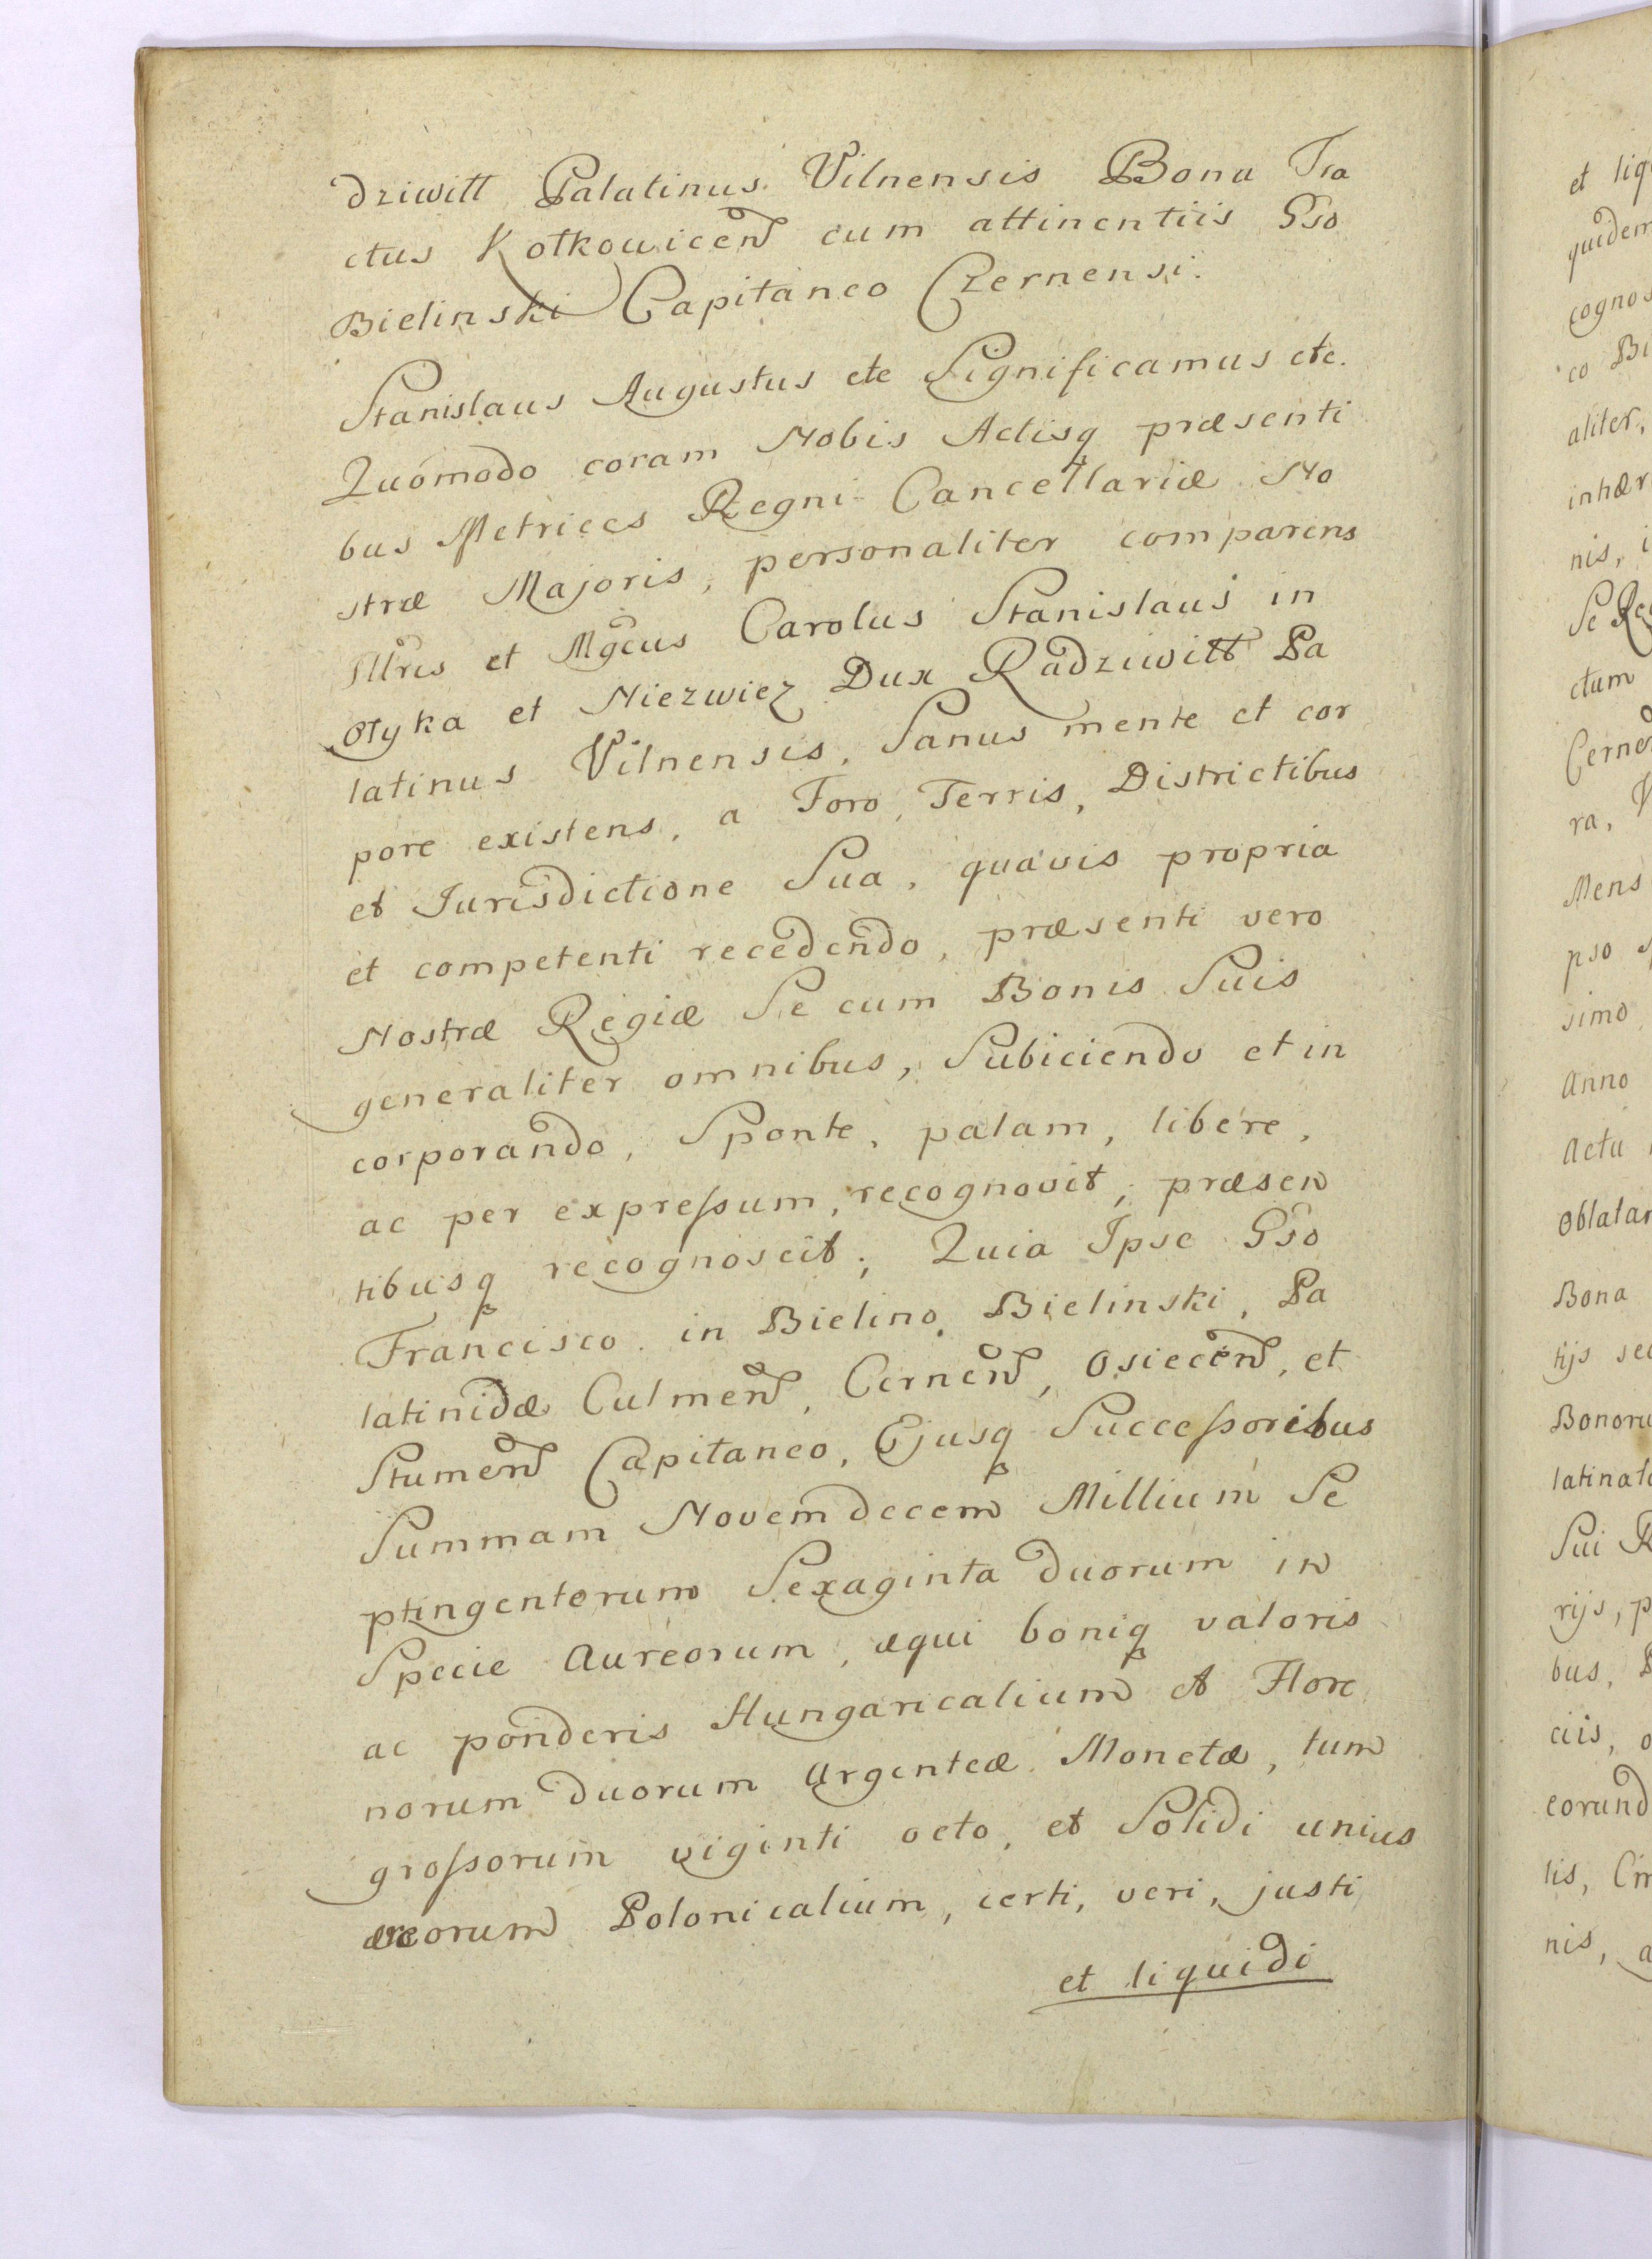 dziwitt Palatinus Vilnensis Bona Tra
ctus Kotkowicen̄ cum attinentiis Gso
Bielinski Capitaneo Czernensi.
Stanislaus Augustus etc Significamus etc.
Quomodo coram Nobis Actisq præsenti
bus Metrices Regni Cancellariæ No
stræ Majoris, personaliter comparens
Illris et Mgcus Carolus Stanislaus in
Olyka et Niezwiez Dux Radziwitt Pa
latinus Vilnensis, Sanus mente et cor
pore existens, a Foro, Terris, Districtibus
et Jurisdictione Sua, quavis propria
et competenti recedendo, præsenti vero
Nostræ Regiæ Se cum Bonis Suis
generaliter omnibus, Subiciendo et in
corporando, Sponte, palam, libere,
ac per expressum, recognovit, præsen
tibusq recognoscit; Quia Ipse Gso
Francisco in Bielino Bielinski, Pa
latinidæ Culmen̄, Cernen̄, Osiecen̄, et
Stumen̄ Capitaneo, Ejusq Successoribus
Summam Novemdecem Millium Se
ptingentorum Sexaginta duorum in
Specie Aureorum, æqui boniq valoris
ac ponderis Hungaricalium et Flore
norum duorum Argenteæ Monetæ, tum
grossorum viginti octo, et Solidi unius
æreorum Polonicalium, certi, veri, justi
et liquidi
et liq
quidem
cognos
co Bi
aliter,
inhær
nis, i
Se Re
ctum
Cernen
ra,
Mens
pso
simo
Anno
Actu
Oblatar
Bona
tijs sec
Bonoru
latinat
Sui R
rijs, p
bus,
ciis, o
eorund
lis,
nis, a